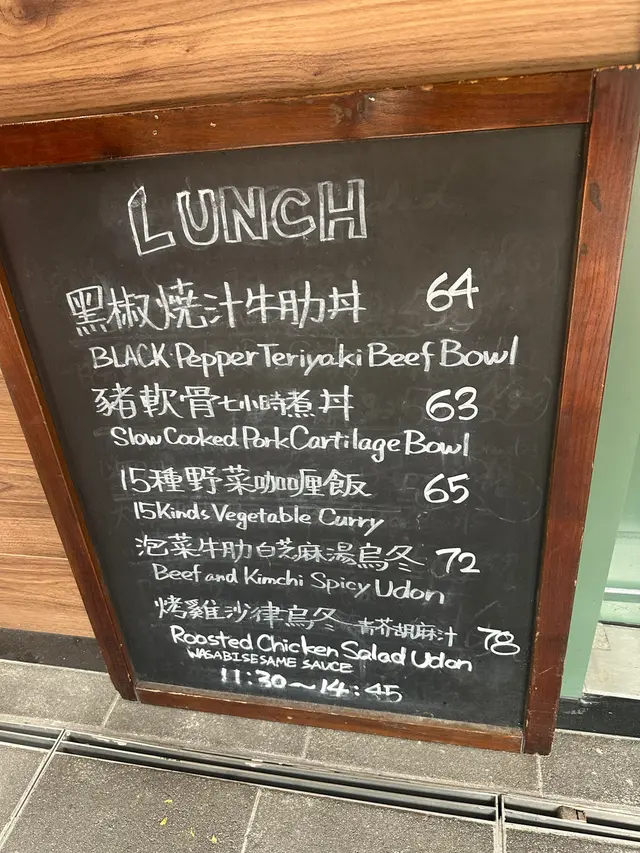 LUNCH
黑椒燒汁牛肋丼 64
BLACK Pepper Teriyaki Beef Bowl
豬軟骨七小時煮丼 63
Slow Cooked Pork Cartilage Bowl
15種野菜咖喱飯 65
15 Kinds Vegetable Curry
泡菜牛肋白芝麻湯烏冬 72
Beef and Kimchi Spicy Udon
烤雞沙律烏冬 青芥胡麻汁 78
Roosted Chicken Salad Udon
WASABI SESAME SAUCE
11:30~14:45